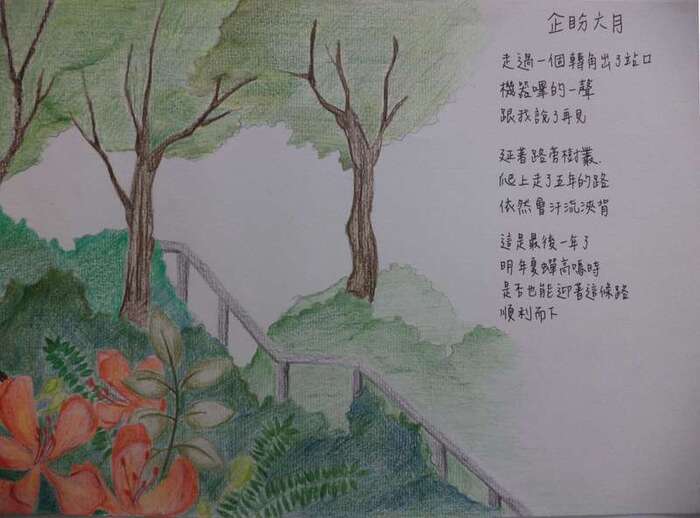 企盼六月
走過一個轉角出了站口
機器嗶的一聲
跟我說了再見
延著路旁樹叢
爬上走了五年的路
依然會汗流浹背
這是最後一年了
明年夏蟬高鳴時
是否也能迎著這條路
順利而下